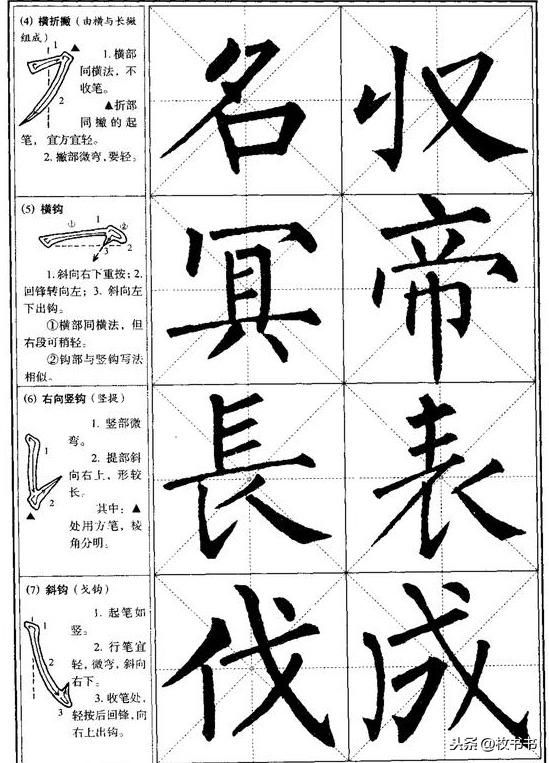 (4) 横折撇（由横与长撇
组成）
1
2
▲
1. 横部
同横法，不
收笔。
▲折部
同撇的起
笔，宜方宜轻。
2. 撇部微弯，要轻。
名 收
(5) 横钩
①
1
②
3
2
1. 斜向右下重按；2.
回锋转向左；3. 斜向左
下出钩。
①横部同横法，但
右段可稍轻。
②钩部与竖钩写法
相似。
冥 帝
(6) 右向竖钩（竖提）
1
2
▲
1. 竖部微
弯。
2. 提部斜
向右上，形较
长。
其中：▲
处用方笔，棱
角分明。
長 表
(7) 斜钩（戈钩）
1
2
3
1. 起笔如
竖。
2. 行笔宜
轻，微弯，斜向
右下。
3. 收笔处，
轻按后回锋，向
右上出钩。
伐 成
头条 @枚书书